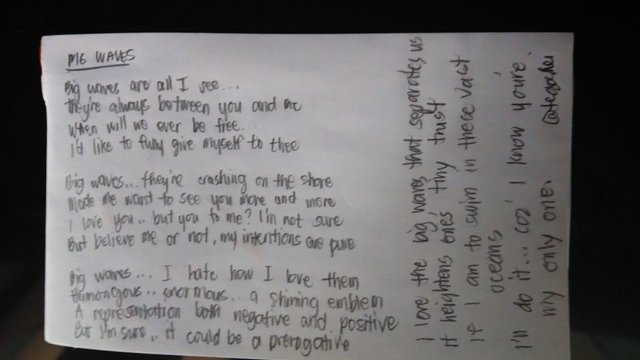 BIG WAVES
Big waves are all I see...
they're always between you and me
When will we ever be free.
I'd like to fully give myself to thee
Big waves... they're crashing on the shore
Made me want to see you more and more
I love you.. but you to me? I'm not sure
But believe me or not, my intentions are pure
Big waves... I hate how I love them
Humongous.. enormous.. a shining emblem
A representation both negative and positive
But I'm sure.. it could be a prerogative
I love the big waves that separates us
It heightens ones' tiny trust
If I am to swim in these vast
oceans
I'll do it... coz' I know you're.
My only one.